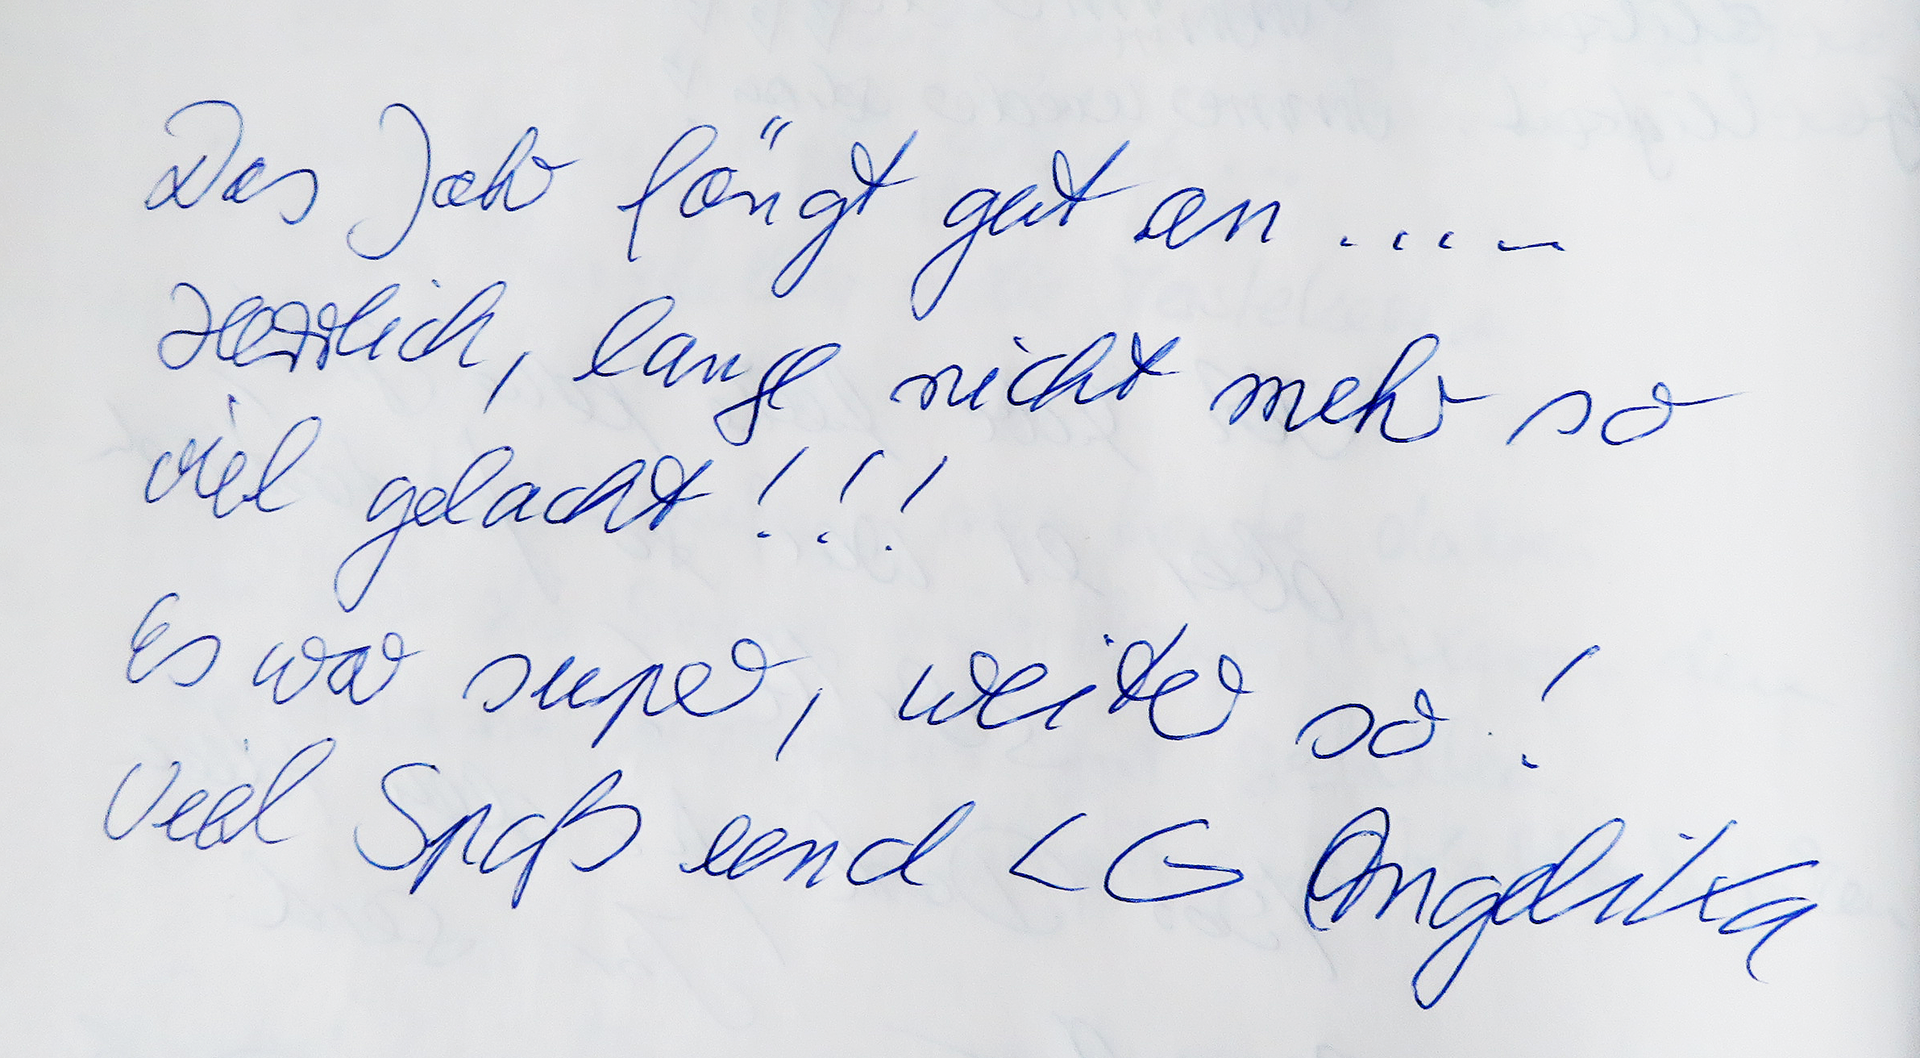 Das Jahr fängt gut an .....
Herrlich, lange nicht mehr so
viel gelacht !!!
Es war super, weiter so !
Viel Spaß und LG Angelika